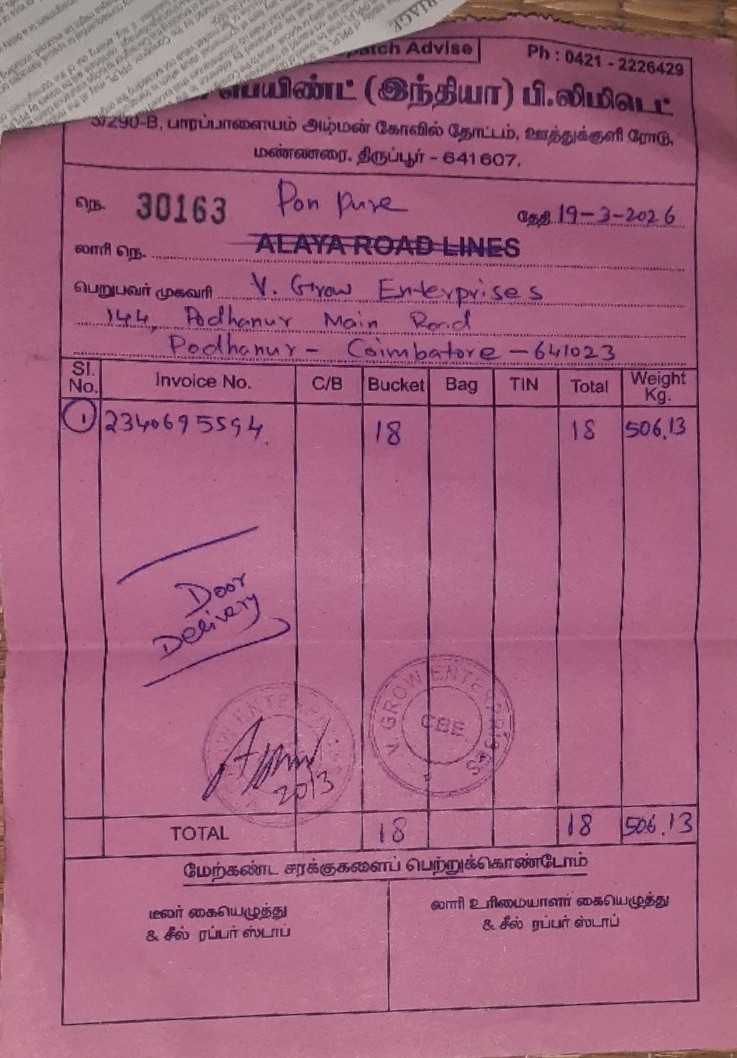 Advise
Ph : 0421 - 2226429
பெயிண்ட் (இந்தியா) பி.லிமிடெட்
3/290-B, பாரப்பாளையம் அம்மன் கோவில் தோட்டம், ஊத்துக்குளி ரோடு,
மண்ணரை, திருப்பூர் - 641607.
நெ. 30163 Pon Pure தேதி 19-3-2026
லாரி நெ. ALAYA ROAD LINES
பெறுபவர் முகவரி V. Grow Enterprises
144, Podhanur Main Road
Podhanur - Coimbatore - 641023
Sl. No. Invoice No. C/B Bucket Bag TIN Total Weight Kg.
1 2340695594 18 18 506.13
Door
Delivery
V GROW ENTERPRISES
CBE
20/3
TOTAL 18 18 506.13
மேற்கண்ட சரக்குகளைப் பெற்றுக்கொண்டோம்
டீலர் கையெழுத்து
& சீல் ரப்பர் ஸ்டாப்
லாரி உரிமையாளர் கையெழுத்து
& சீல் ரப்பர் ஸ்டாப்